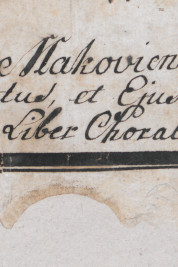 e Makovien
tus, et Ejus
Liber Choral